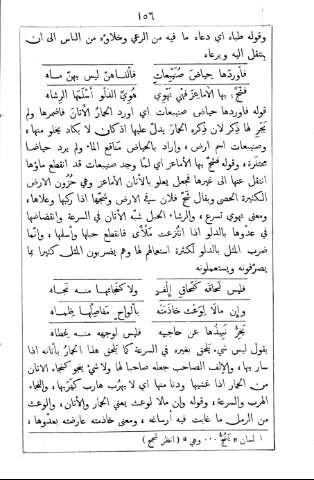 ١٥٦
وقوله طباه اي دعاه ما فيه من الرعي وخلاؤه من الناس الى ان
ينتقل اليه ويرعاه
فأوردها حياض صُنَيْبِعاتٍ فألفاهنّ ليس بهنّ ماء
فشَجّ بها الأماعِزَ فهي تهوي هُوِيَّ الدلو أسلمها الرشاء
قوله فأوردها حياض صنيبعات اي اورد الحمارُ الأتانَ فاضمرها ولم
يَجْرِ لها ذِكر لان ذِكره الحمارَ يدلّ عليها اذ كان لا يكاد يخلو منها،
وصنيبعات اسم ارض، واراد بالحياض مناقع الماء ولم يرد حياضا
محتفَرة، وقوله فشجّ بها الأماعز اي لمّا وجد صنيبعات قد انقطع ماؤها
انتقل عنها الى غيرها فجعل يعلو بالأتان الأماعز وهي حُزُون الارض
الكثيرة الحصى ويقال شجّ فلان في الارض وشجّها اذا ركبها وعلاها،
ومعنى تهوي تسرع، والرشاء الحبل شبّه الأتان في السرعة وانقضاضها
في عدْوها بالدلو اذا انتُزعت ملْأى فانقطع حبلها وأسلمها، وانّما
ضرب المثل بالدلو لكثرة استعمالهم لها وهم يضربون المثل كثيرا بما
يصرّفونه ويستعملونه
فليس لحاقُه كلحاق إلْفٍ ولا كنجائها منه نجاء
وإن مالا لوَعْثٍ خاذمَتْه بألواحٍ مفاصلُها ظماء
يخرّ نبيذُها عن حاجبيه فليس لوجهه منه غطاء
يقول ليس شيء يلحق بغيره في السرعة كما يلحق هذا الحمارُ بأتانه اذا
سار بها، والإلف الصاحب جعله صاحبا لها ولا شيء ينجو كنجائها
من الحمار اذا غشيها ودنا منها اي لا يهرُب هارب كهَرَبها، والنجاء
الهرب والسرعة، وقوله وإن مالا لوعث يعني الحمار والأتان، والوعث
من الرمل ما غابت فيه أرساغه، ومعنى خاذمته عارضته بعدْوها